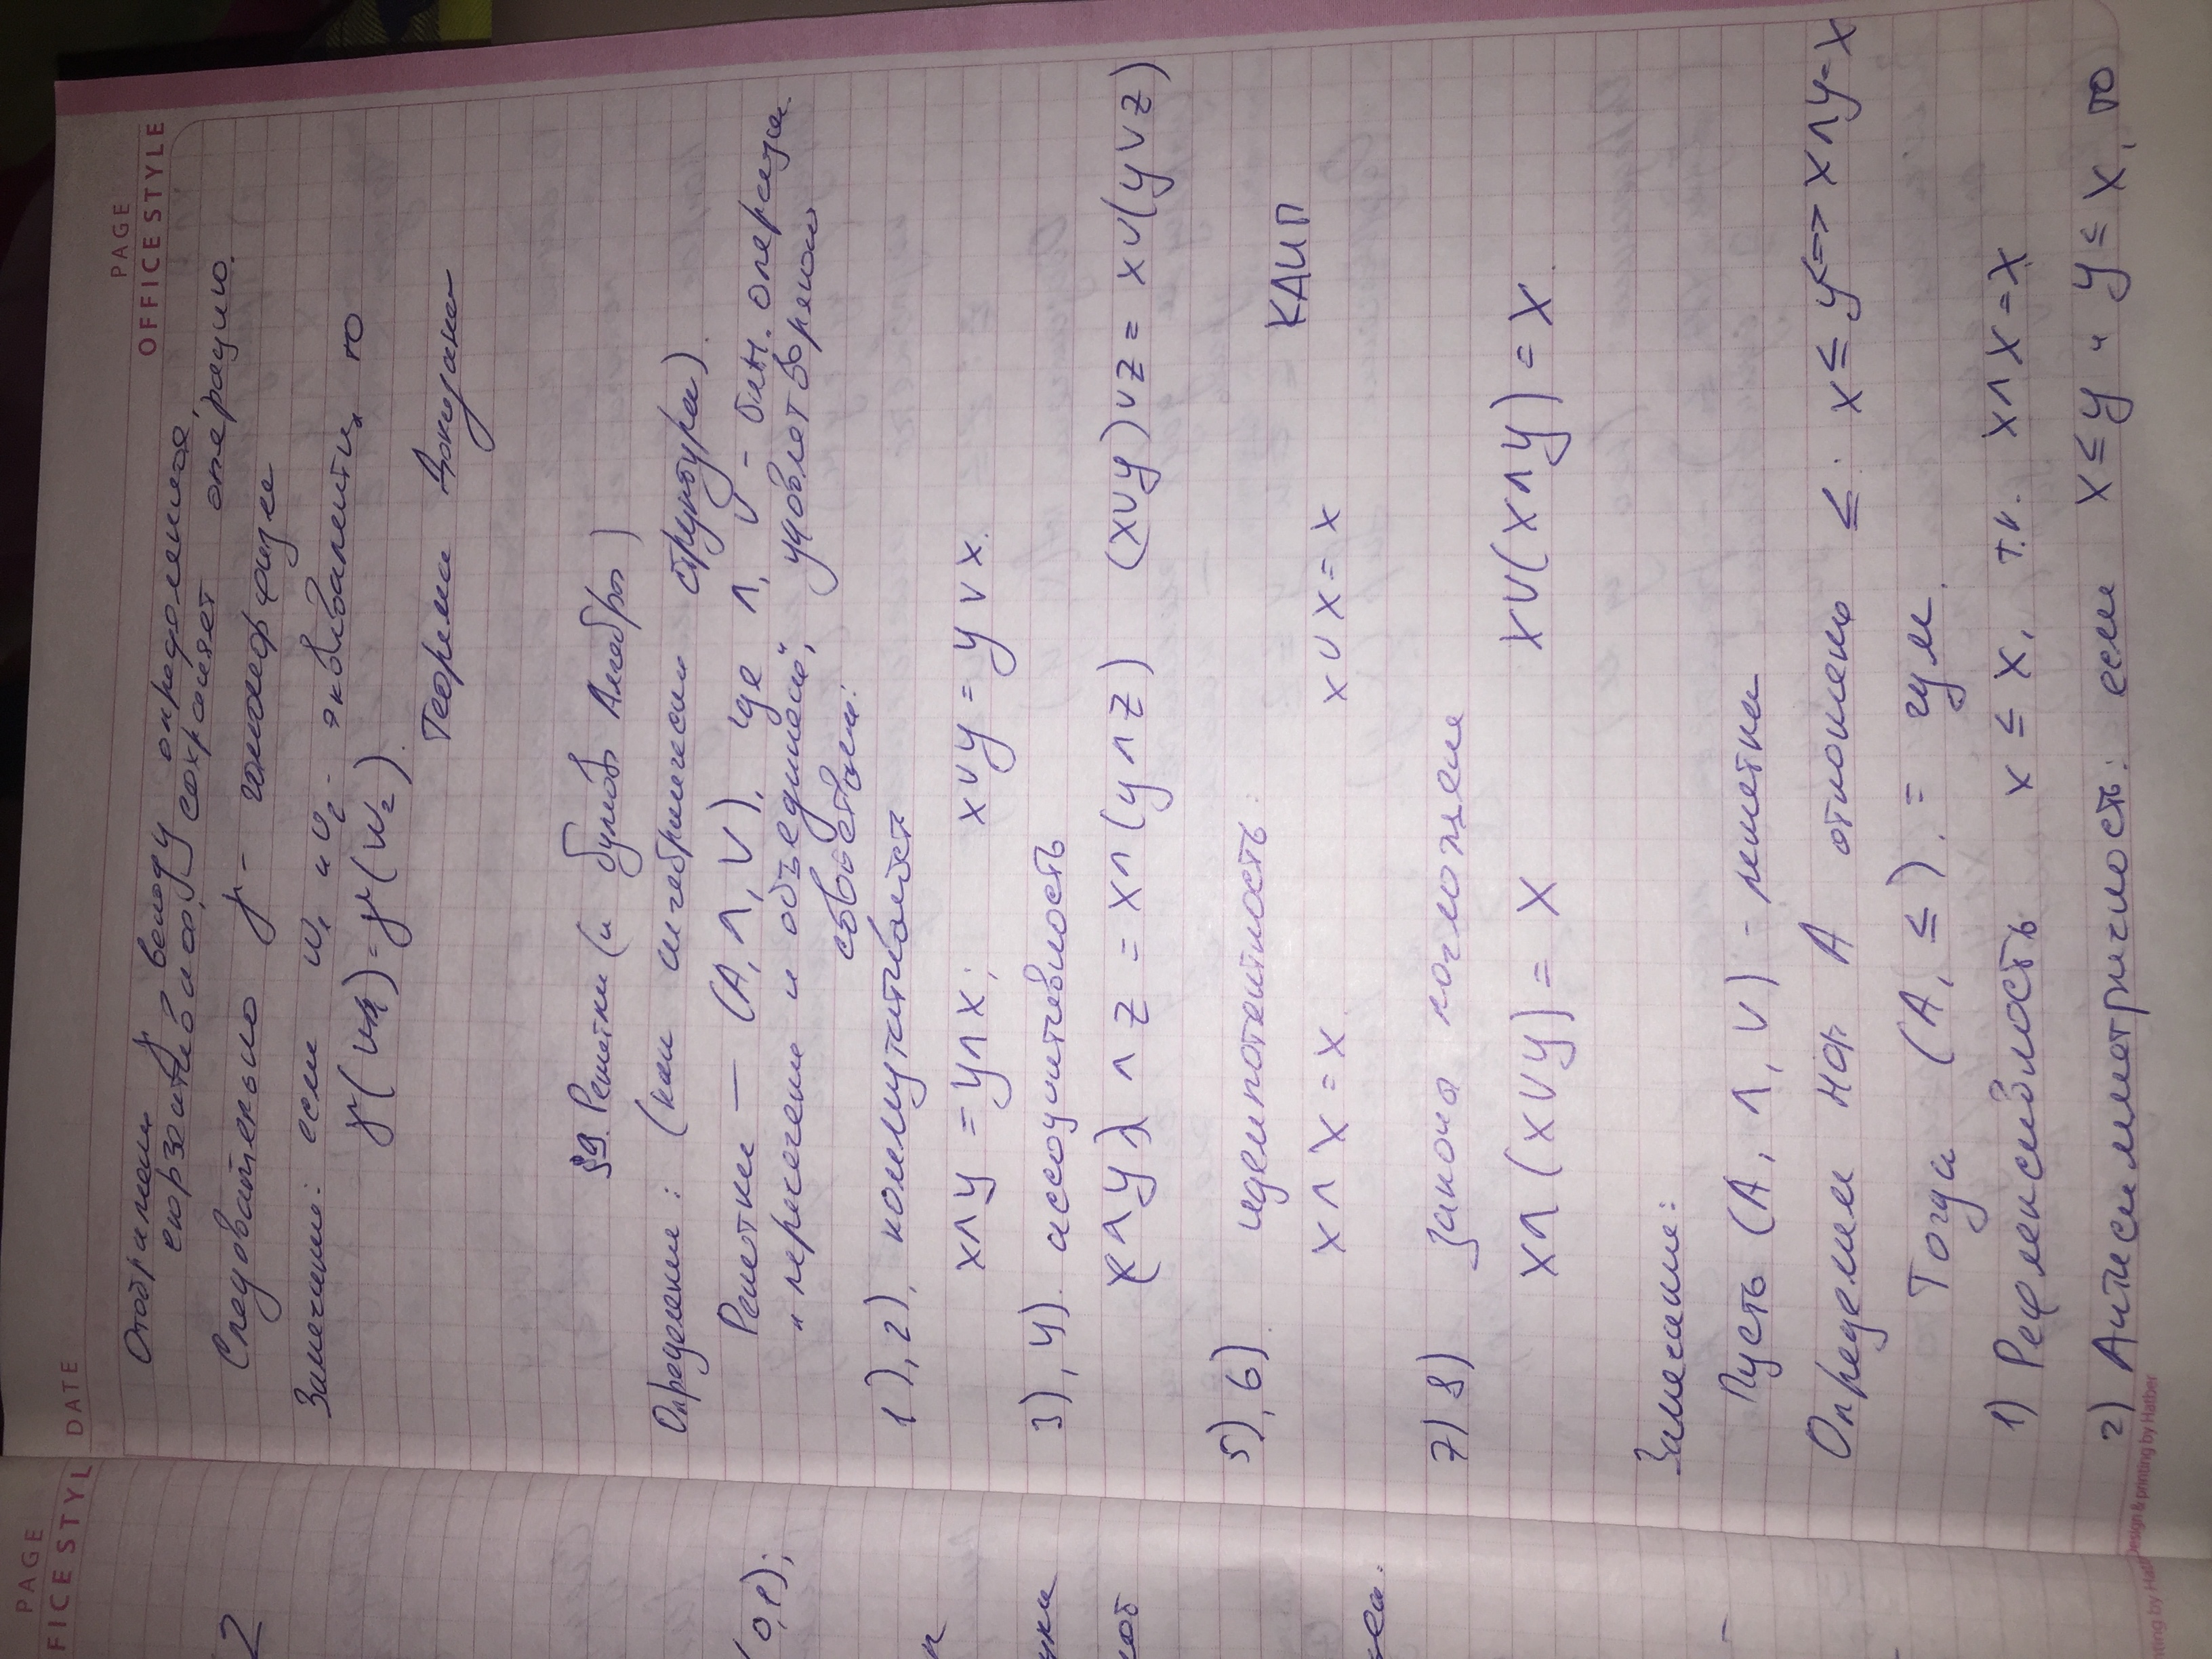 PAGE
OFFICE STYL
DATE
PAGE
OFFICE STYLE
Отображение γ всюду определенное,
сюръективное, сохраняет операцию.
Следовательно γ - гомоморфизм
Замечание: если w₁ и w₂ - эквивалентны, то
γ(w₁) = γ(w₂).
Теорема Доказана
§9. Решетки (и булевы Алгебры)
Определение: (как алгебраическая структура).
Решетка — (A, ∧, ∨), где ∧, ∨ - бин. операции
"пересечение и объединение", удовлетворяют
свойствам:
1), 2). коммутативность
x∧y = y∧x; x∨y = y∨x.
3), 4). ассоциативность
(x∧y)∧z = x∧(y∧z) (x∨y)∨z = x∨(y∨z)
5), 6). идемпотентность:
КАИП
x∧x = x. x∨x = x
7) 8) Законы поглощения
x∧(x∨y) = x x∨(x∧y) = x.
Замечание:
Пусть (A, ∧, ∨) - решетка
Определим на A отношение ≤: x ≤ y <=> x∧y = x
Тогда (A, ≤). = чум.
1) Рефлексивность x ≤ x, т.к. x∧x = x
2) Антисимметричность: если x ≤ y и y ≤ x, то
2
0,1);
Design & printing by Hatber